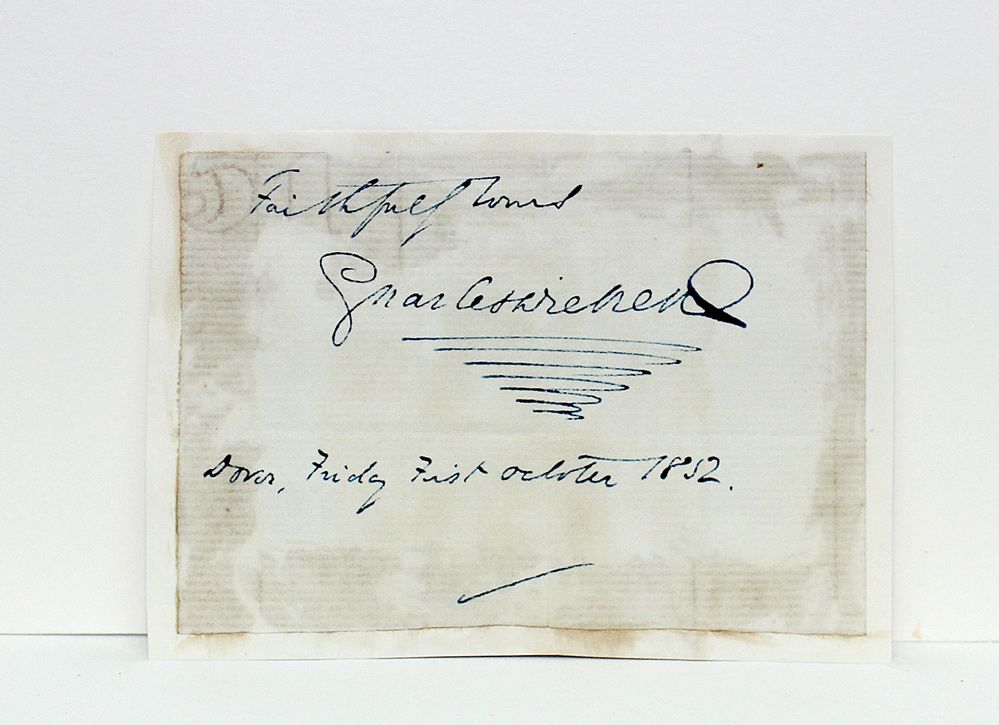 Faithfully Yours
Charles Dickens
Dover, Friday First October 1852.